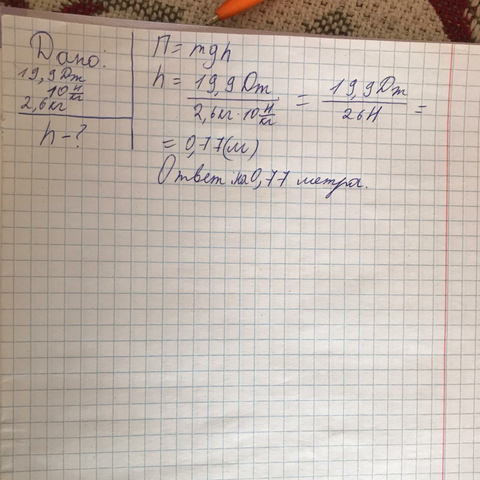 Дано:
19,9 Дж
10 Н/кг
2,6 кг
h - ?
П = mgh
h = 19,9 Дж / 2,6 кг · 10 Н/кг = 19,9 Дж / 26 Н =
= 0,77 (м)
Ответ на 0,77 метра.